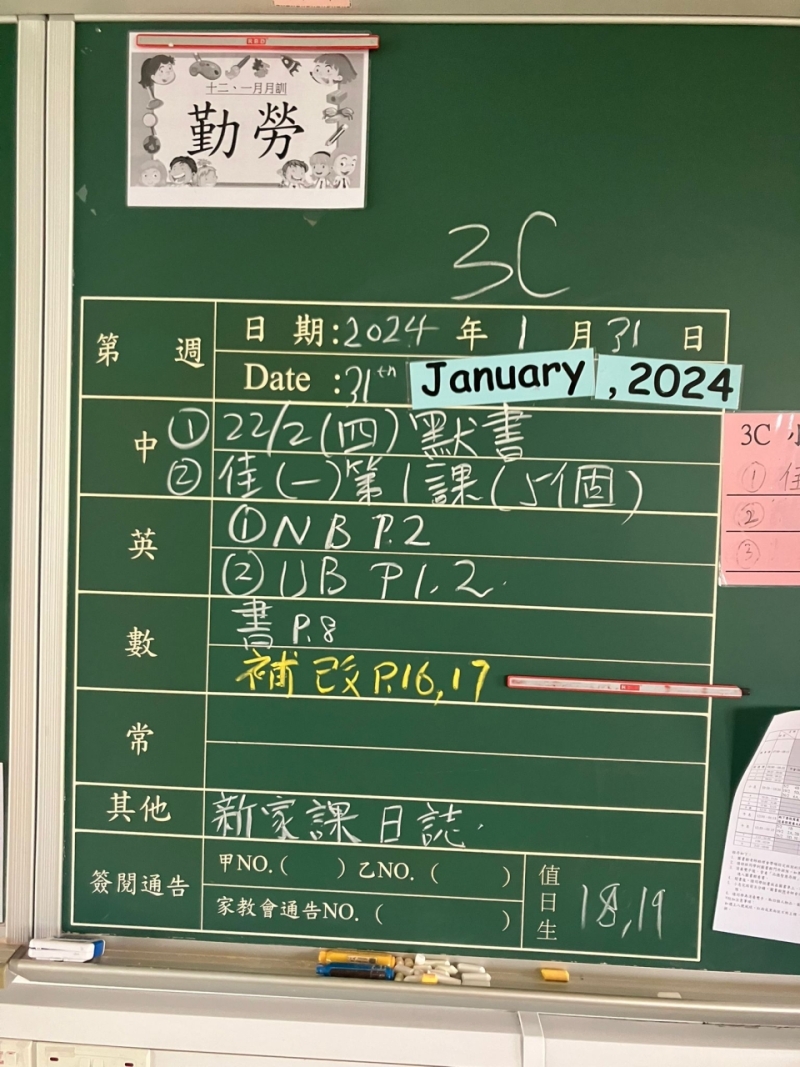 十二、一月月訓
勤勞
3C
第 週
日 期:2024 年 1 月 31 日
Date :31th January , 2024
中 ① 22/2 (四) 默書
② 佳(一)第1課(5個)
英 ① NB P.2
② UB P1.2.
數 書 P.8
補改 P.16,17
常
其他 新家課日誌.
簽閱通告 甲NO.( ) 乙NO.( )
家教會通告NO.( )
值日生 18,19
3C 小
① 佳
②
③